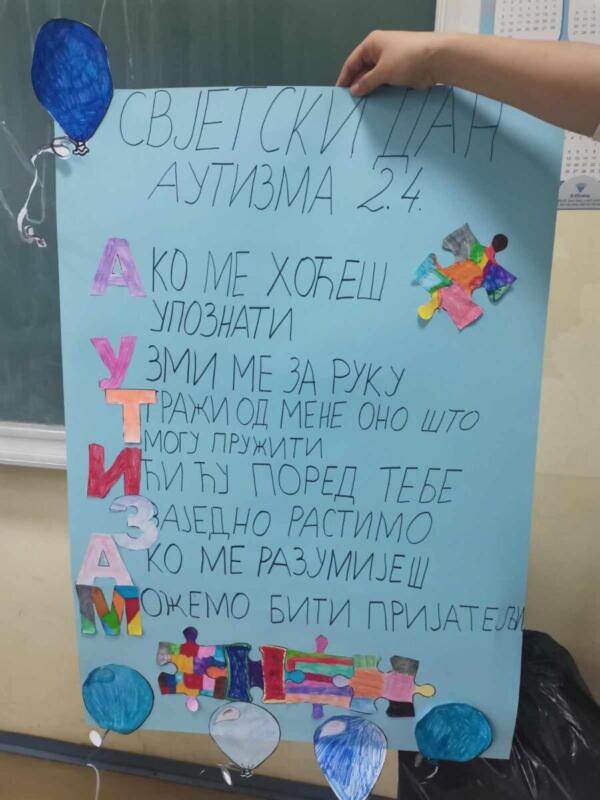 СВЈЕТСКИ ДАН
АУТИЗМА 2.4.
АКО МЕ ХОЋЕШ
УПОЗНАТИ
УЗМИ МЕ ЗА РУКУ
ТРАЖИ ОД МЕНЕ ОНО ШТО
МОГУ ПРУЖИТИ
ИЋИ ЋУ ПОРЕД ТЕБЕ
ЗАЈЕДНО РАСТИМО
АКО МЕ РАЗУМИЈЕШ
МОЖЕМО БИТИ ПРИЈАТЕЉИ